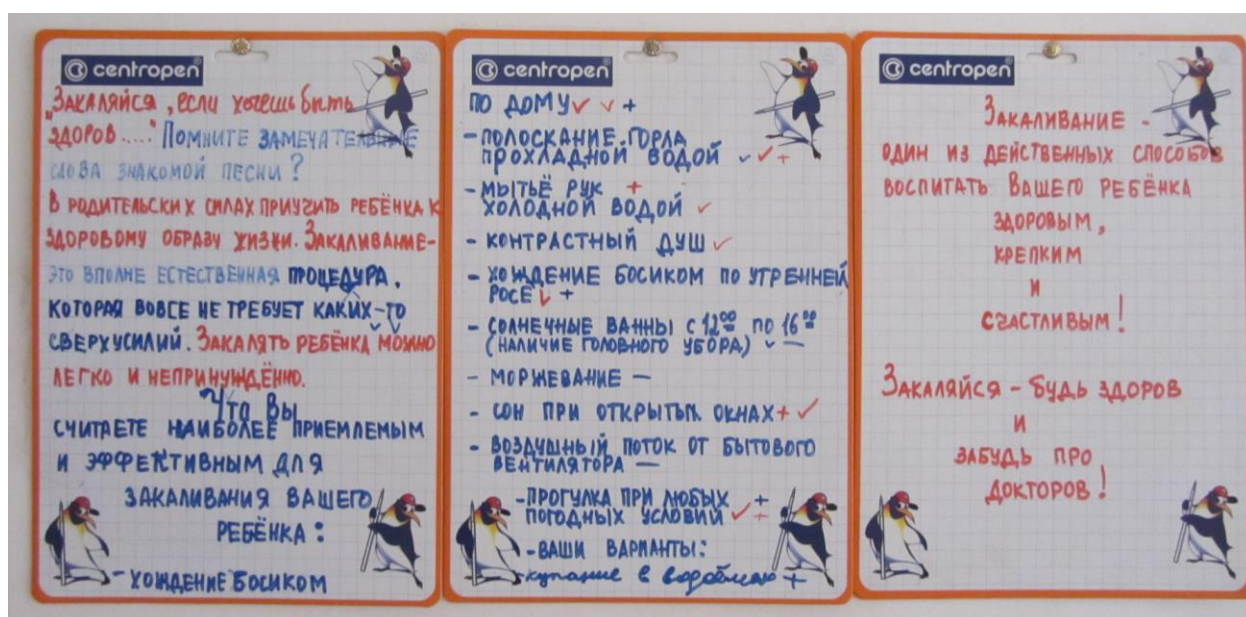 centropen
„Закаляйся, если хочешь быть
здоров....." Помните замечательные
слова знакомой песни?
В родительских силах приучить ребёнка к
здоровому образу жизни. Закаливание-
это вполне естественная процедура,
которая вовсе не требует каких-то
сверхусилий. Закалять ребёнка можно
легко и непринуждённо.
Что Вы
считаете наиболее приемлемым
и эффективным для
закаливания вашего
ребёнка:
- хождение босиком
centropen
по дому ✓ ✓ +
- полоскание горла
прохладной водой ✓ ✓ +
- мытьё рук +
холодной водой ✓
- контрастный душ ✓
- хождение босиком по утренней
росе ✓ +
- солнечные ванны с 12⁰⁰ по 16⁰⁰
(наличие головного убора) ✓ —
- моржевание —
- сон при открытых окнах + ✓
- воздушный поток от бытового
вентилятора —
- прогулка при любых +
погодных условий ✓ +
- ваши варианты:
- купание в +
centropen
Закаливание -
один из действенных способов
воспитать Вашего ребёнка
здоровым,
крепким
и
счастливым!
Закаляйся - будь здоров
и
забудь про
докторов!